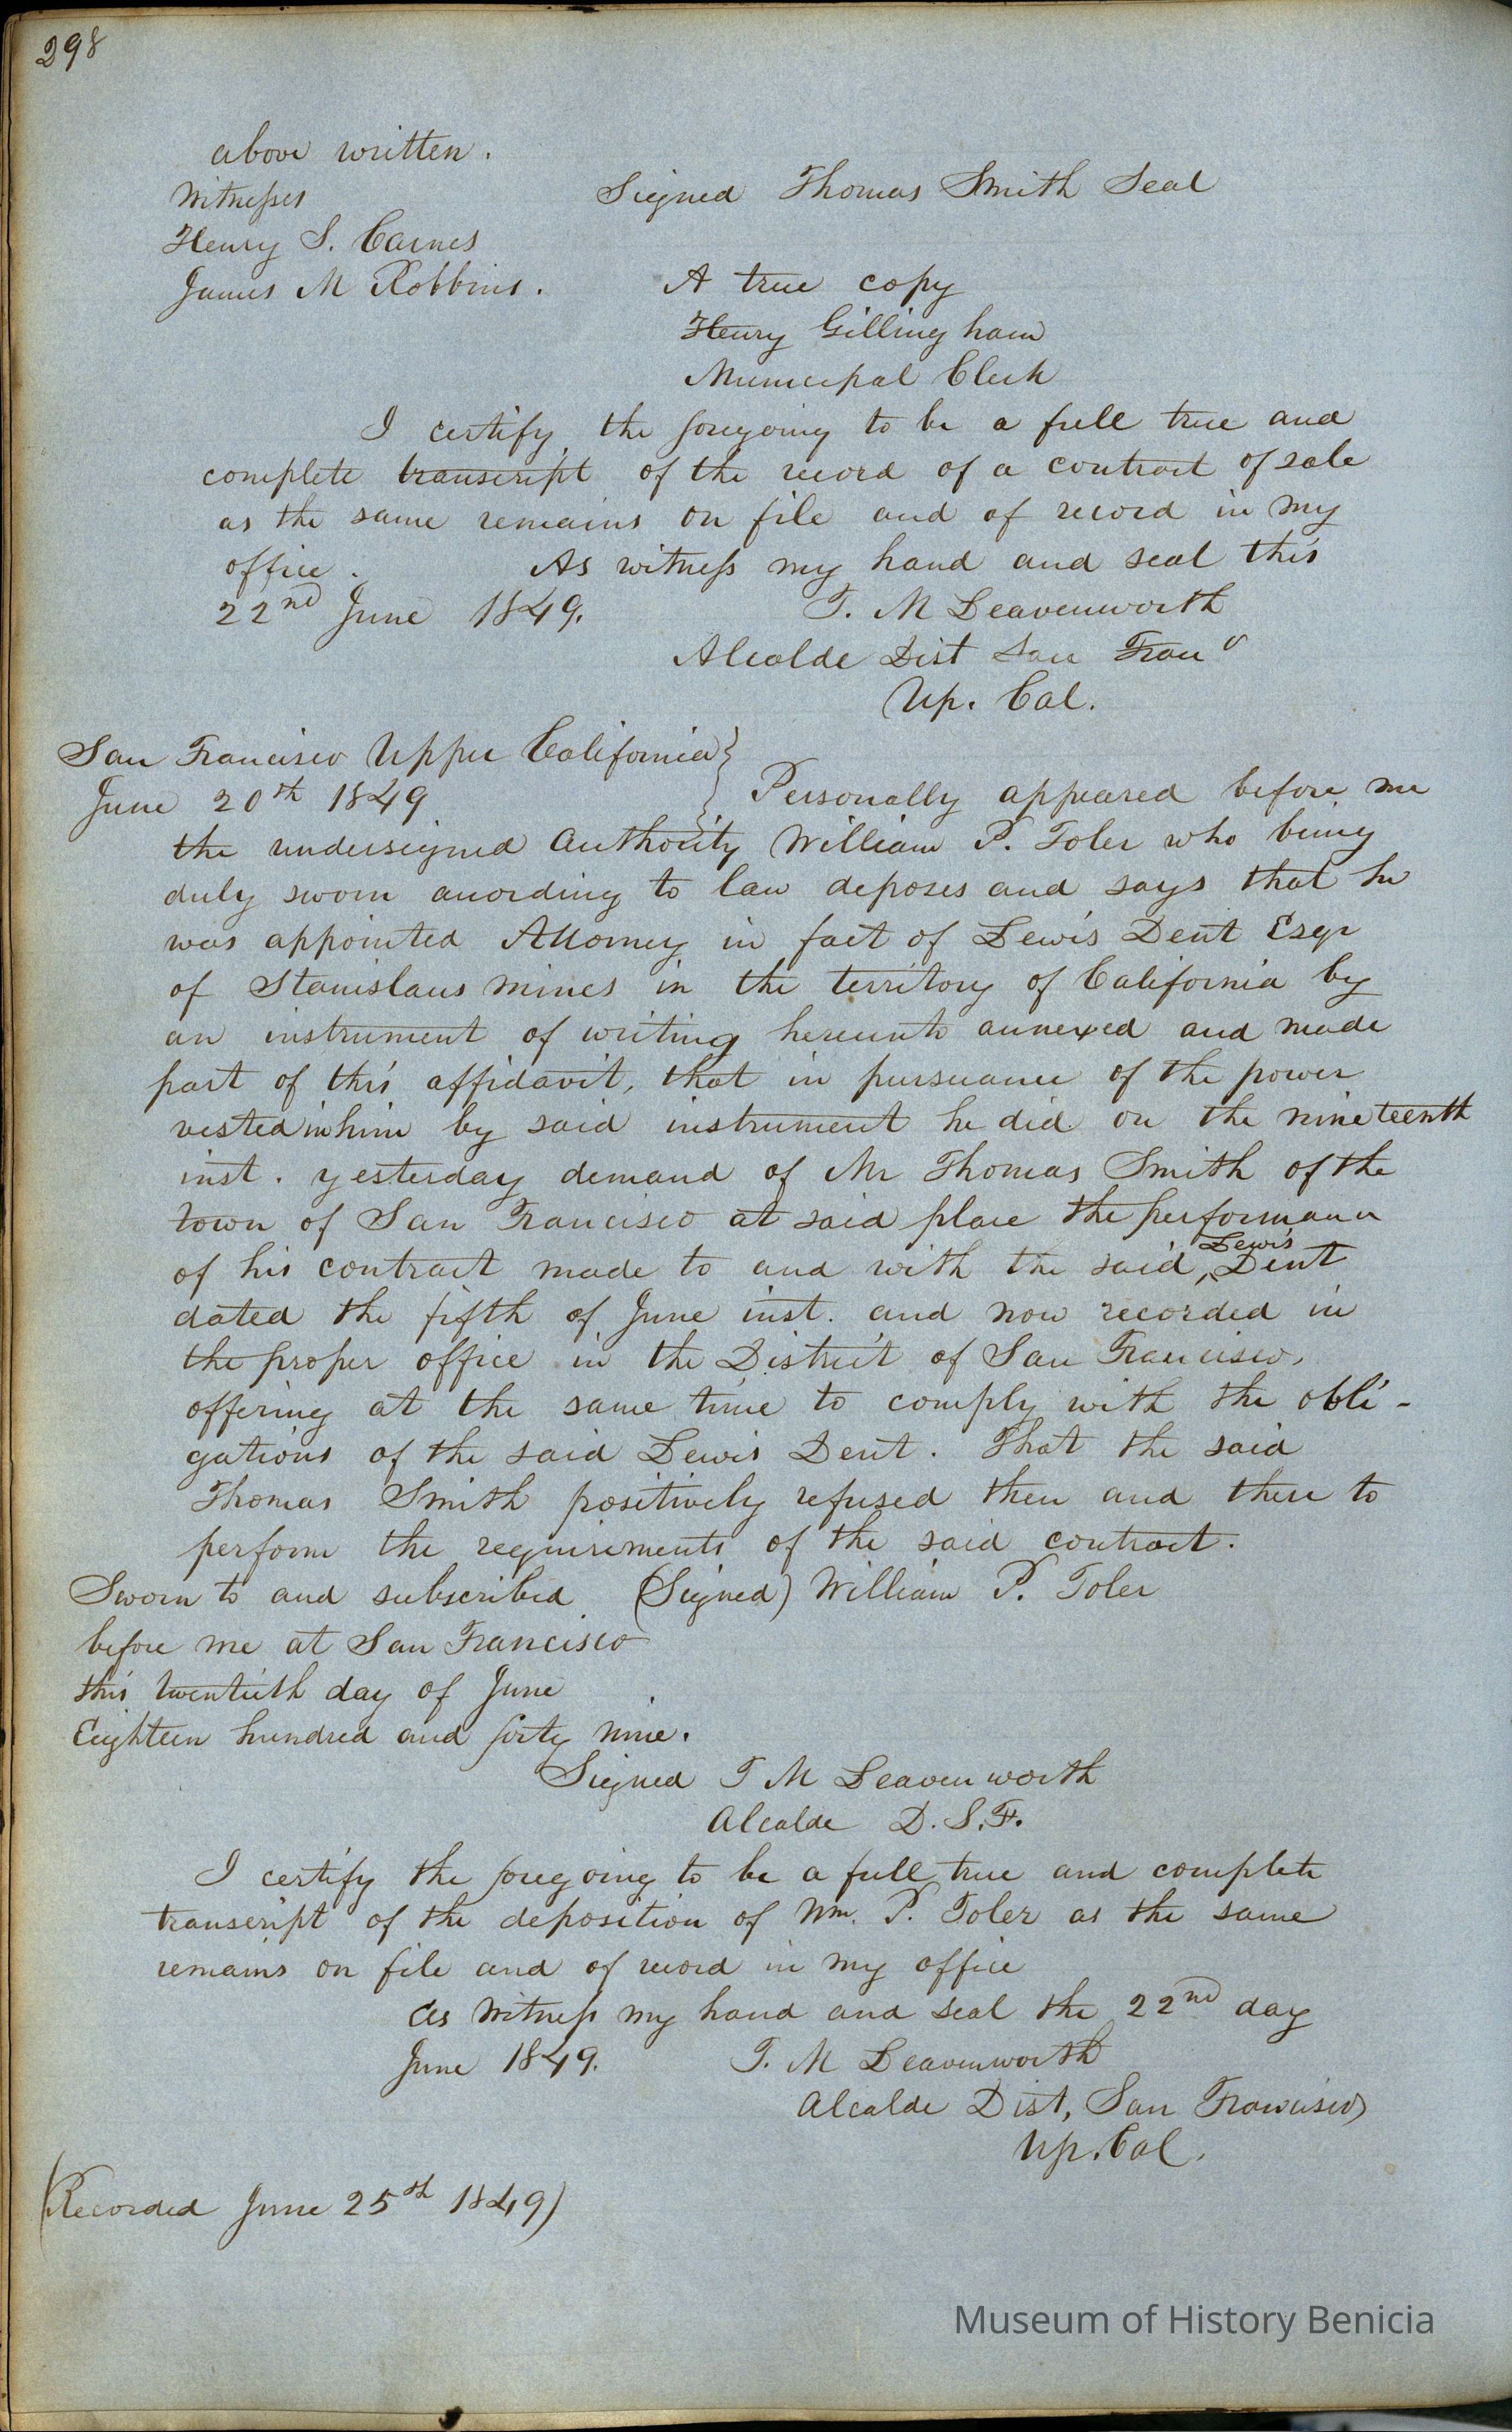 298
above written.
Witnesses
Signed Thomas Smith Seal
Henry S. Carnes
James M Robbins.
A true copy
Henry Gillingham
Municipal Clerk
I certify the foregoing to be a full true and
complete transcript of the record of a contract of sale
as the same remains on file and of record in my
office. As witness my hand and seal this
22nd June 1849. T. M Leavenworth
Alcalde Dist San Franº
Up. Cal.
San Francisco Upper California }
June 20th 1849 } Personally appeared before me
the undersigned authority William P. Toler who being
duly sworn according to law deposes and says that he
was appointed Attorney in fact of Lewis Dent Esqr
of Stanislaus mines in the territory of California by
an instrument of writing hereunto annexed and made
part of this affidavit, that in pursuance of the power
vested in him by said instrument he did on the nineteenth
inst. yesterday demand of Mr Thomas Smith of the
town of San Francisco at said place the performance
of his contract made to and with the said, Lewis Dent
dated the fifth of June inst. and now recorded in
the proper office in the District of San Francisco,
offering at the same time to comply with the obli-
gations of the said Lewis Dent. That the said
Thomas Smith positively refused then and there to
perform the requirements of the said contract.
Sworn to and subscribed (Signed) William P. Toler
before me at San Francisco
this twentieth day of June
Eighteen hundred and forty nine.
Signed T M Leavenworth
Alcalde D. S. F.
I certify the foregoing to be a full true and complete
transcript of the deposition of Wm. P. Toler as the same
remains on file and of record in my office
As Witness my hand and seal the 22nd day
June 1849. T. M Leavenworth
Alcalde Dist, San Francisco
Up. Cal.
(Recorded June 25th 1849)
Museum of History Benicia